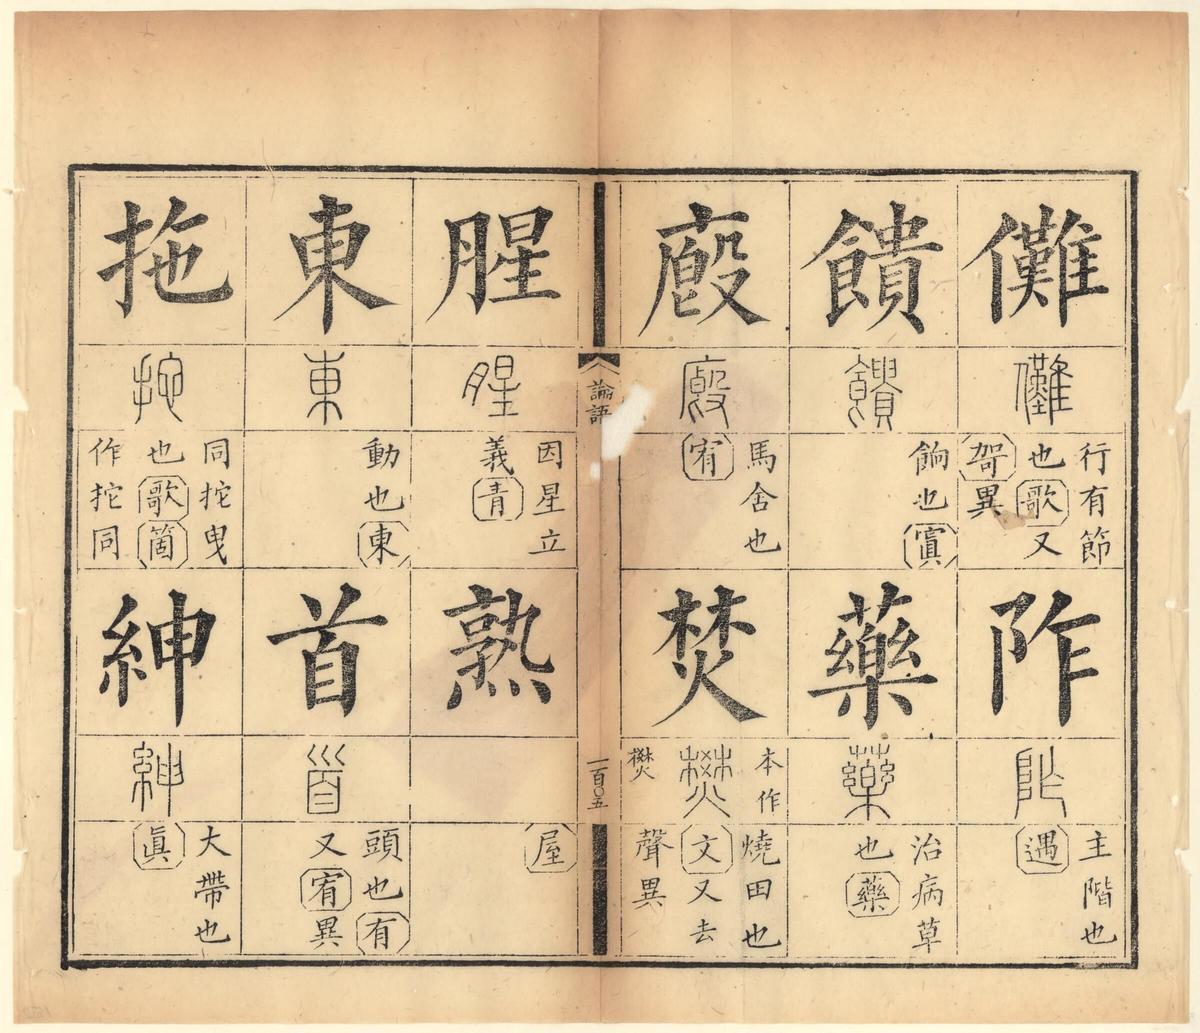 儺
儺
行有節
也歌又
哿異
阼
阼
主階也
遇
饋
饋
餉也寘
藥
藥
治病草
也藥
廏
廏
馬舍也
宥
焚
本作
燓
燓
燒田也
文又去
聲異
論語
一百〇五
腥
腥
因星立
義青
熟
屋
東
東
動也東
首
首
頭也有
又宥異
拖
拕
同拕曳
也歌箇
作拕同
紳
紳
大帶也
眞